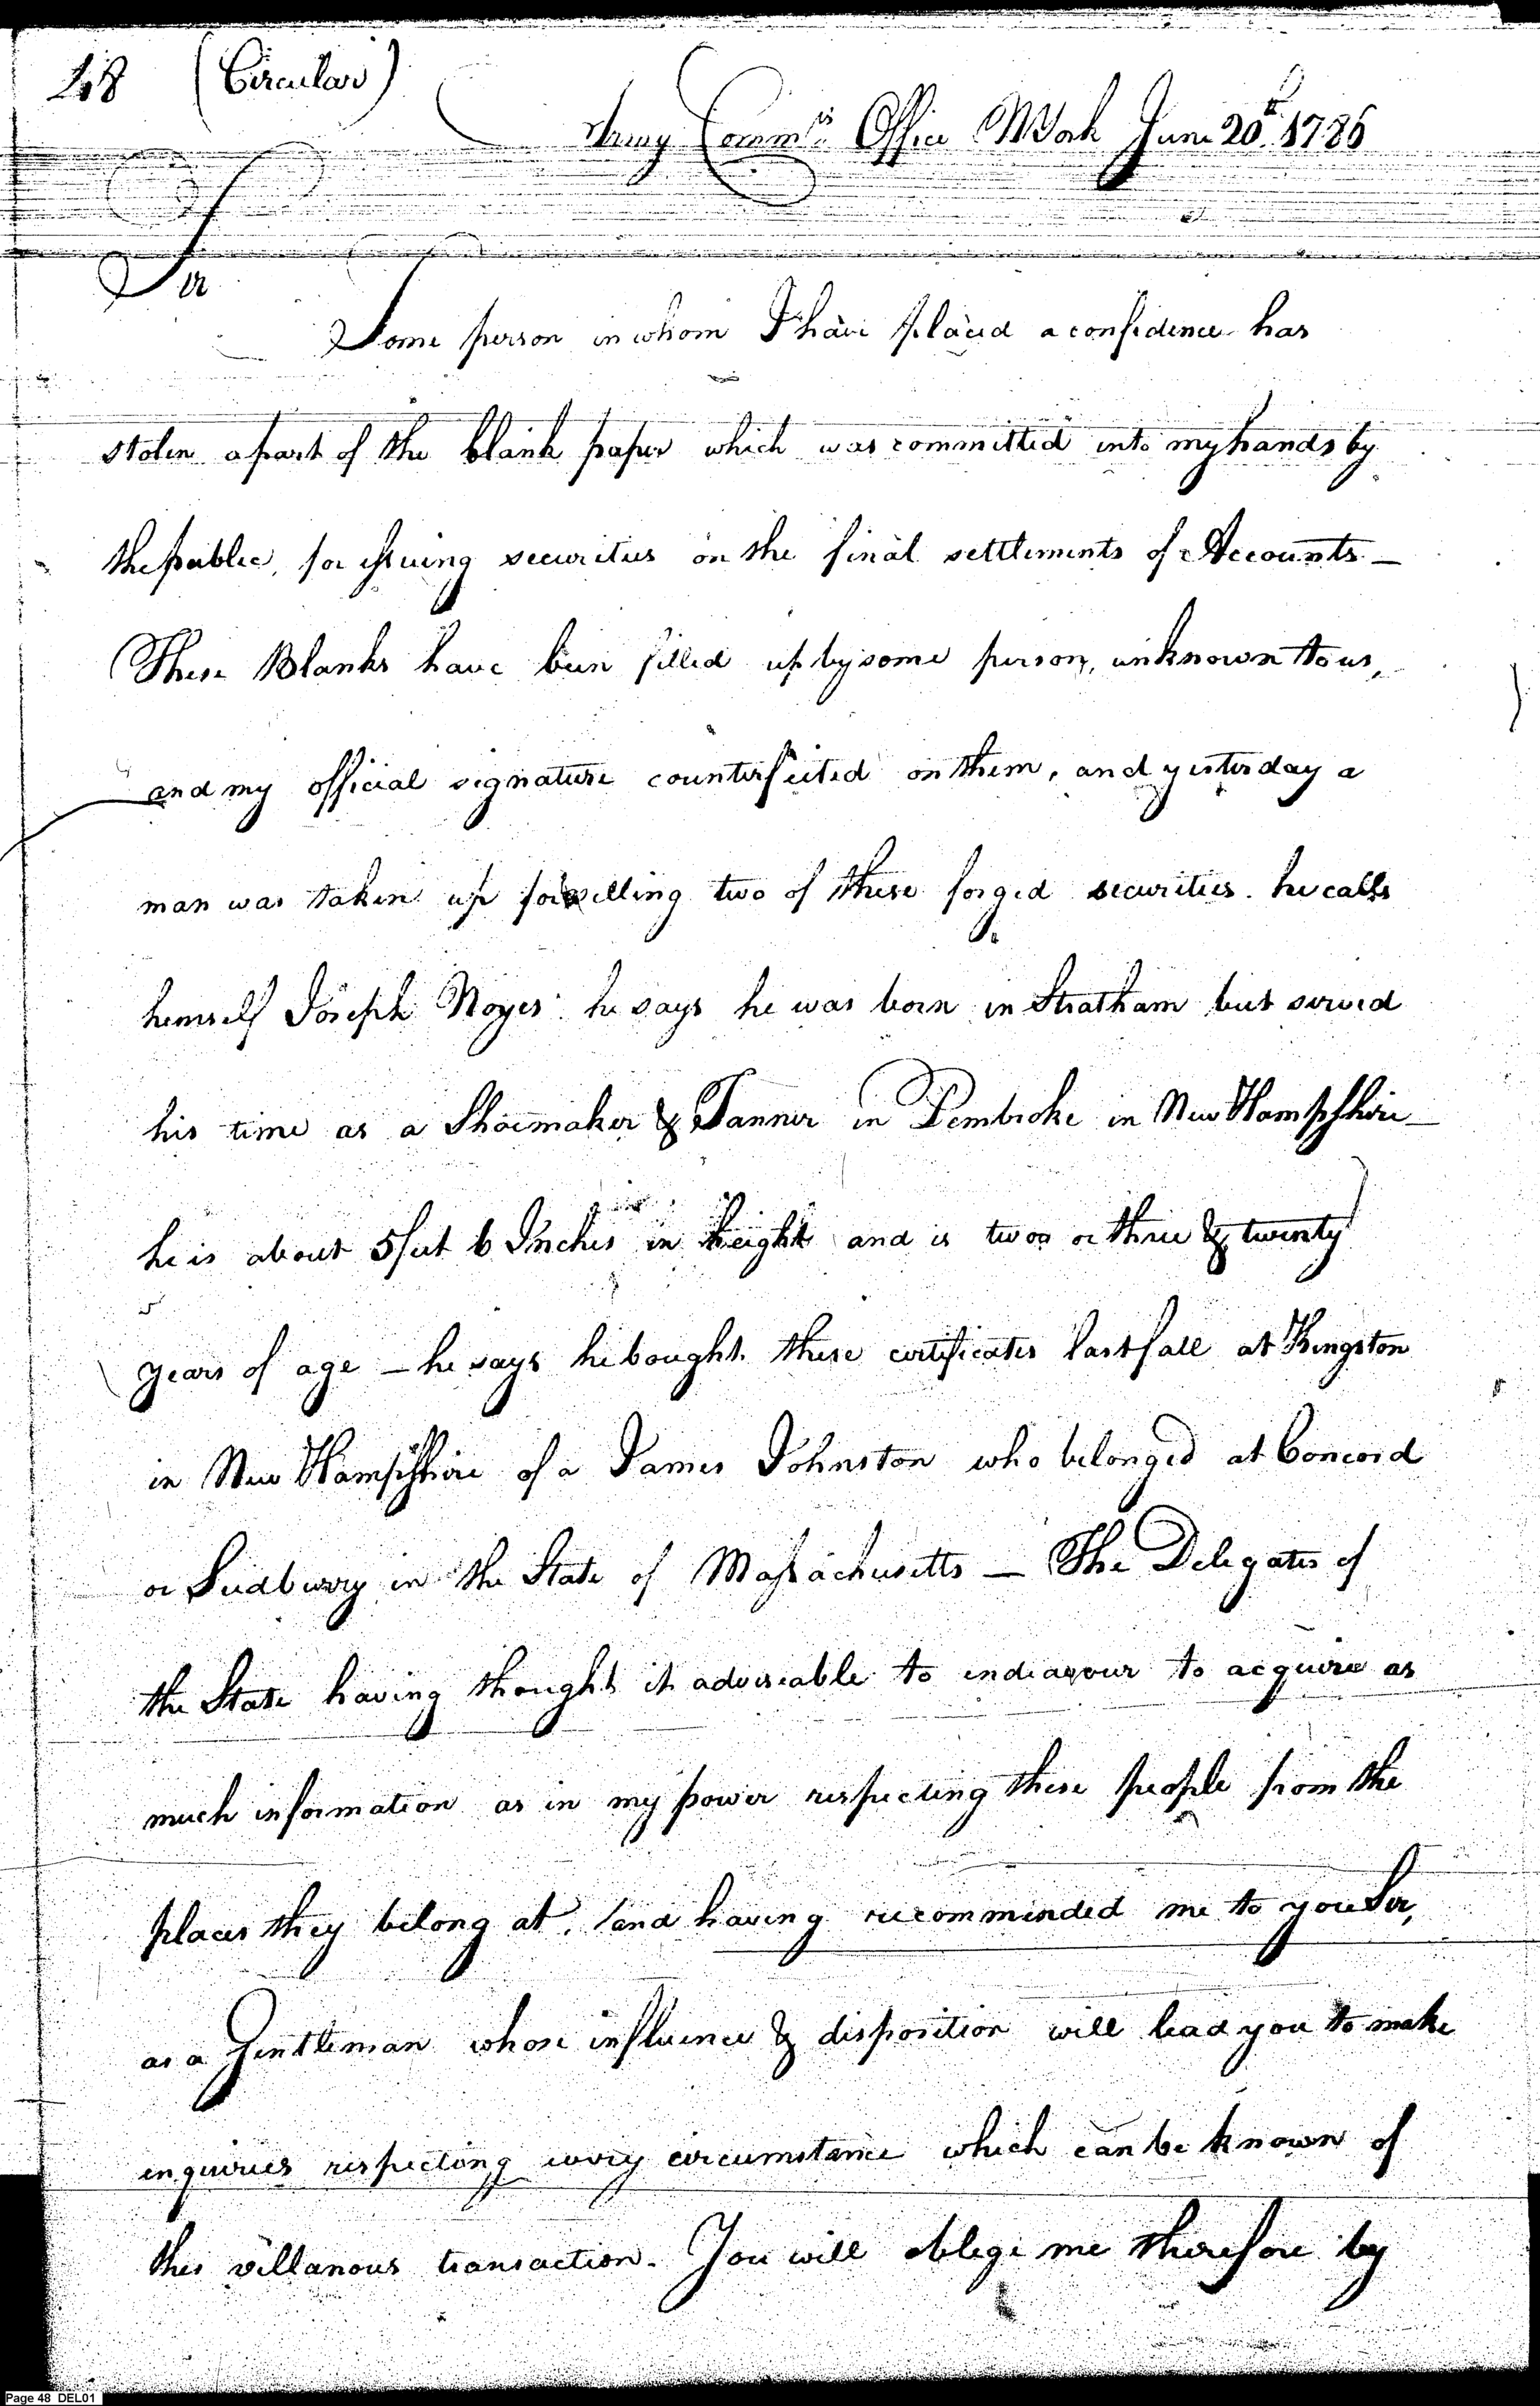 48 (Circular)
Army Commrs. Office NYork June 20th. 1786
Sir
Some person in whom I have placed a confidence has
stolen a part of the blank paper which was committed into my hands by
the public, for issuing securities on the final settlements of Accounts —
These Blanks have been filled up by some person, unknown to us,
and my official signature counterfeited on them, and yesterday a
man was taken up for selling two of these forged securities. he calls
himself Joseph Noyes. he says he was born in Stratham but served
his time as a Shoemaker & Tanner in Pembroke in New Hampshire —
he is about 5 feet 6 Inches in height and is two or three & twenty
years of age — he says he bought these certificates last fall at Kingston
in New Hampshire of a James Johnston who belonged at Concord
or Sudbury in the State of Massachusetts — The Delegates of
the State having thought it adviseable to endeavour to acquire as
much information as in my power respecting these people from the
places they belong at, and having recommended me to you Sir,
as a Gentleman whose influence & disposition will lead you to make
inquiries respecting every circumstance which can be known of
this villanous transaction. You will oblige me therefore by
Page 48 DEL01